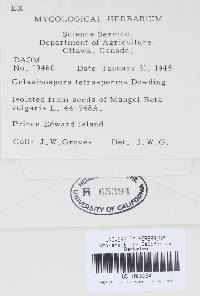 EX
MYCOLOGICAL HERBARIUM
Science Service,
Department of Agriculture
Ottawa, Canada.
DAOM
No. 19460 Date January 31, 1945
Gelasinospora tetrasperma Dowding
Isolated from seeds of Mangel Beta
vulgaris L. 44-748A.
Prince Edward Island
Coll: J.W.Groves Det. J.W.G.
65394
UNIVERSITY OF CALIFORNIA
UNIVERSITY HERBARIUM
University of California
Berkeley